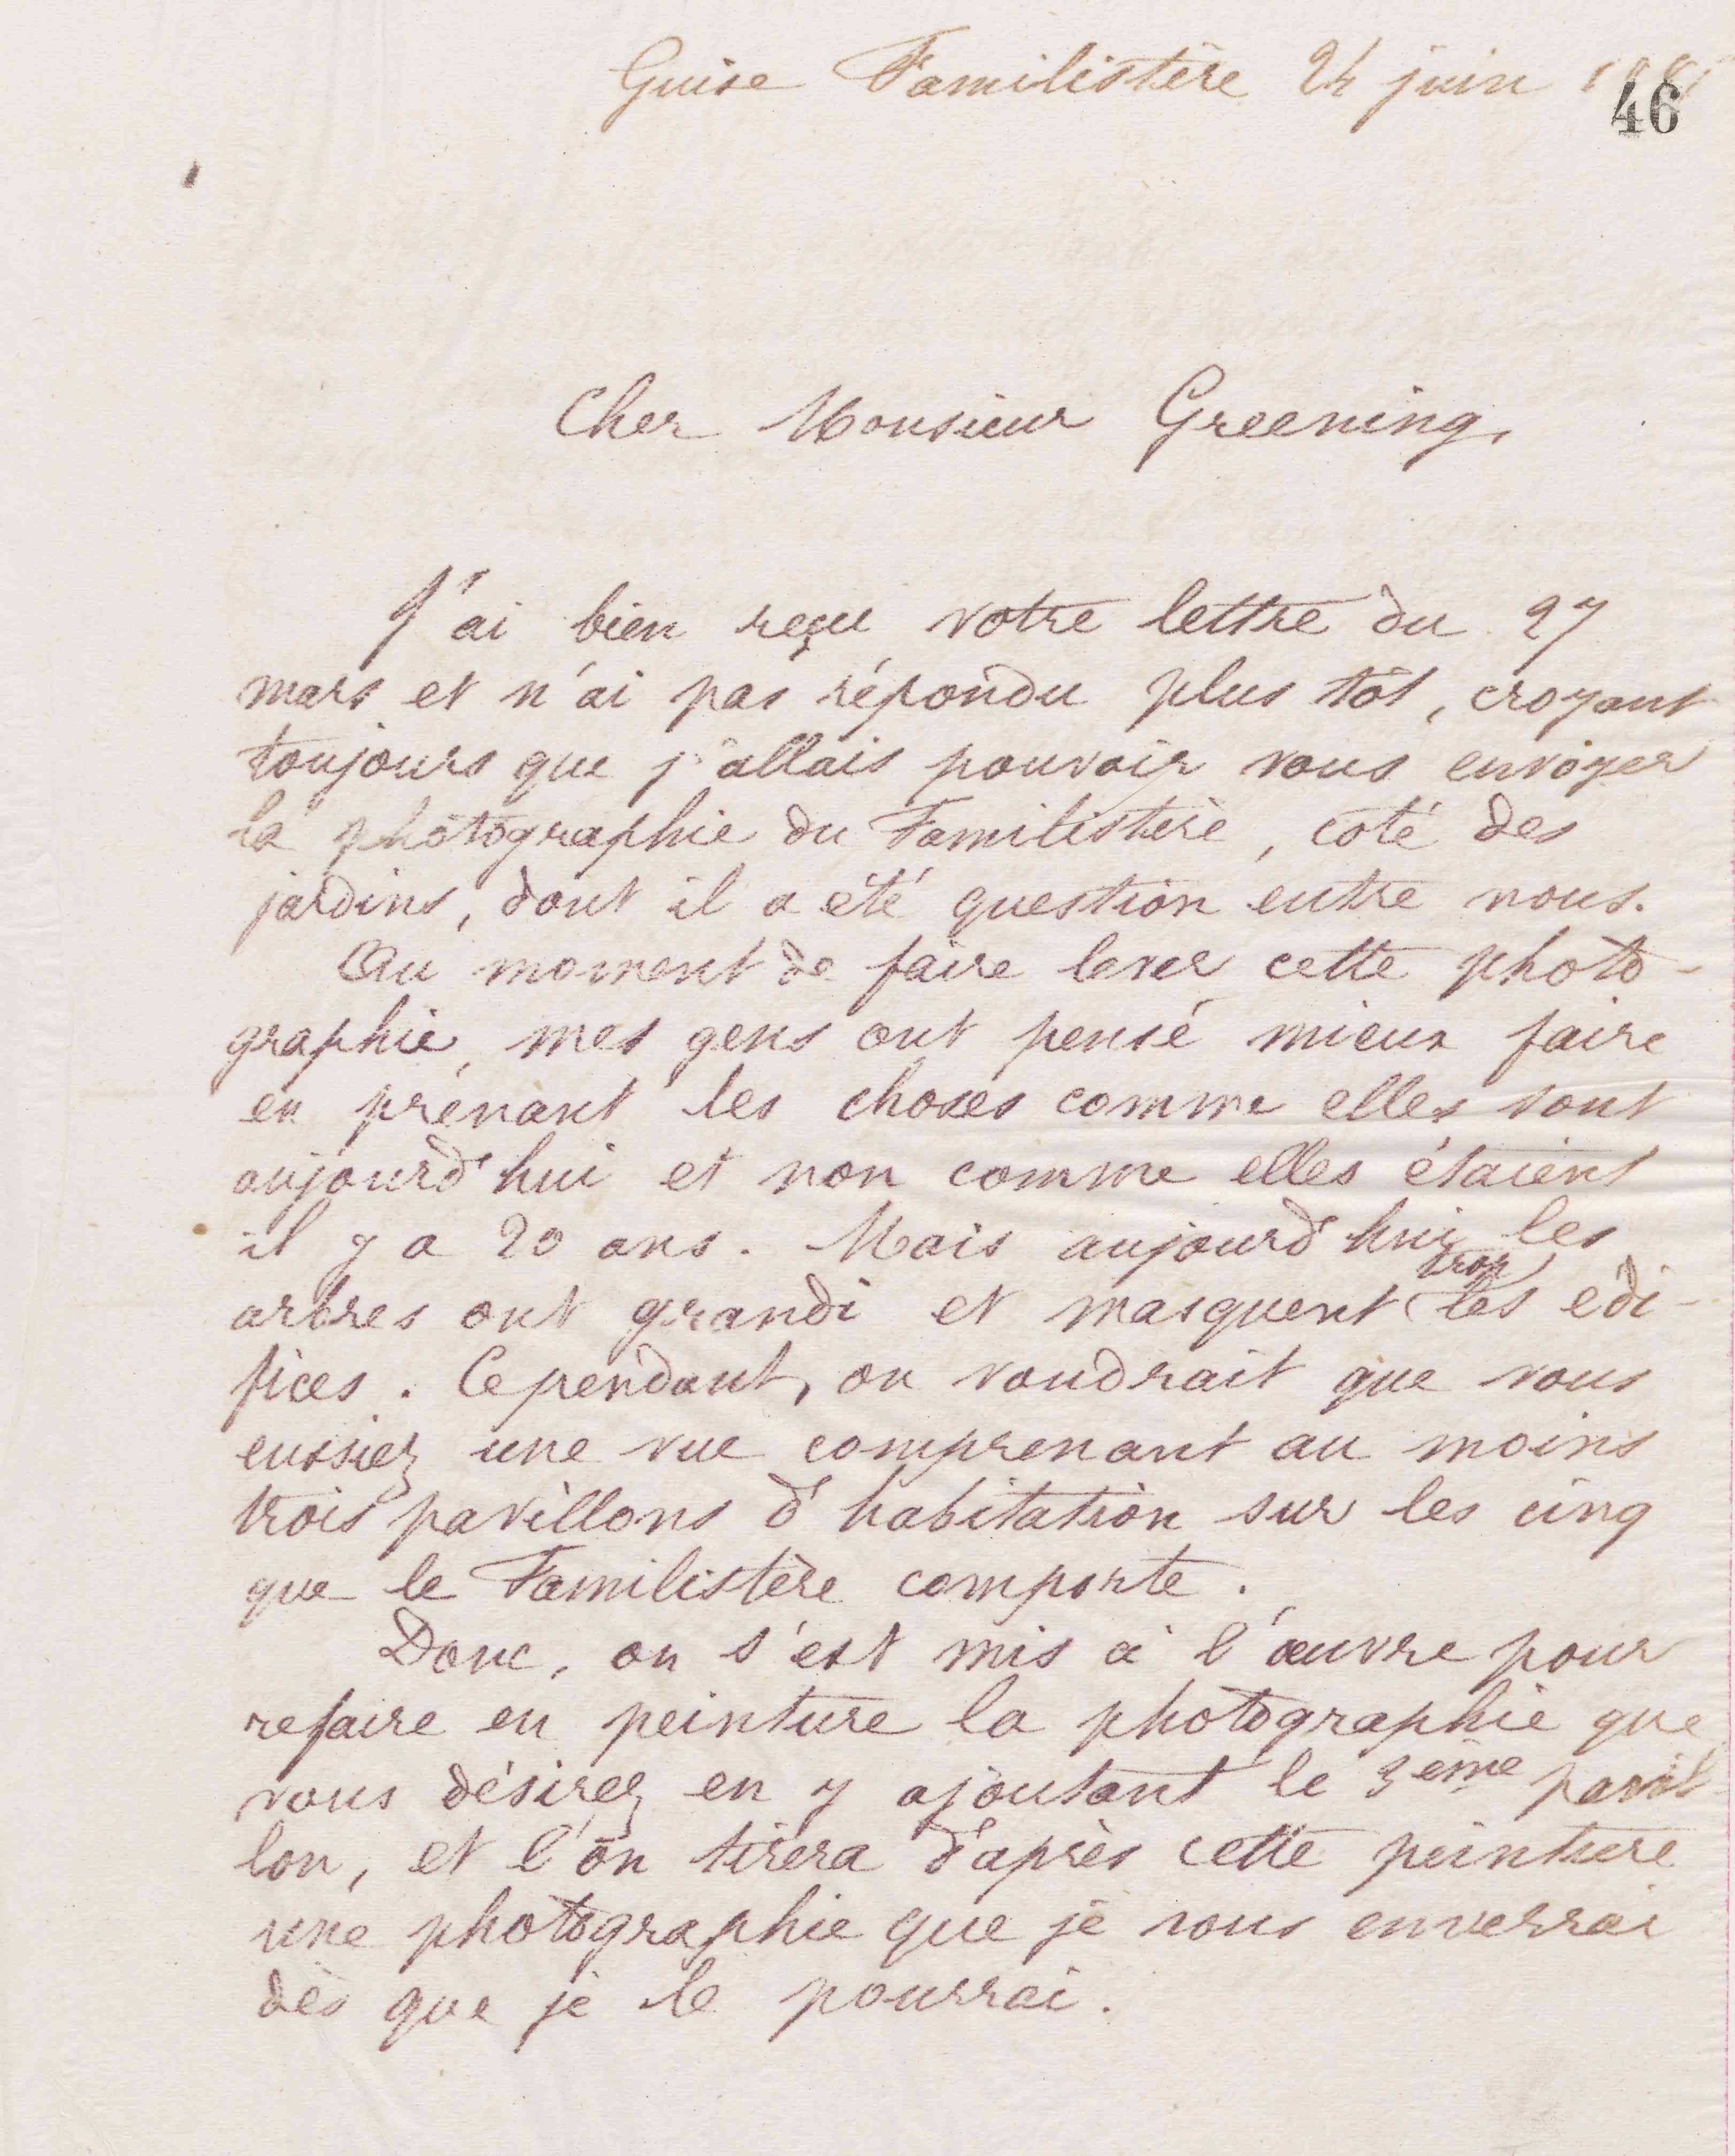 Guise Familistère 24 juin
46
Cher Monsieur Greening,
J'ai bien reçu votre lettre du 27
mars et n'ai pas répondu plus tôt, croyant
toujours que j'allais pouvoir vous envoyer
la photographie du Familistère, coté des
jardins, dont il a été question entre nous.
Au moment de faire lever cette photo-
graphie, mes gens ont pensé mieux faire
en prenant les choses comme elles sont
aujourd'hui et non comme elles étaient
il y a 20 ans. Mais aujourd'hui les
arbres ont grandi et masquent trop les édi-
fices. Cependant, on voudrait que vous
eussiez une vue comprenant au moins
trois pavillons d'habitation sur les cinq
que le Familistère comporte.
Donc, on s'est mis à l'œuvre pour
refaire en peinture la photographie que
vous désirez en y ajoutant le 3ème pavil-
lon, et l'on tirera d'après cette peinture
une photographie que je vous enverrai
dès que je le pourrai.